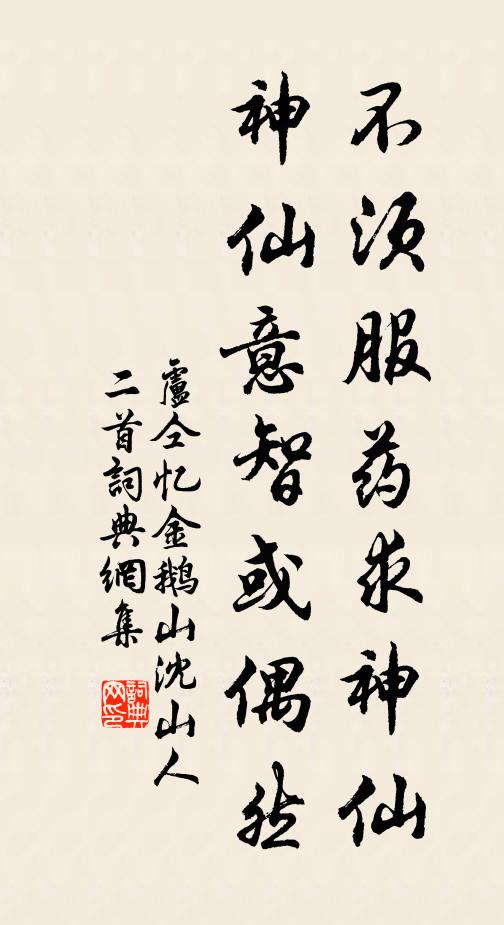 不须服药求神仙
神仙意智或偶然
盧仝忆金鹅山沈山人
二首詞典網集
詞典
网印